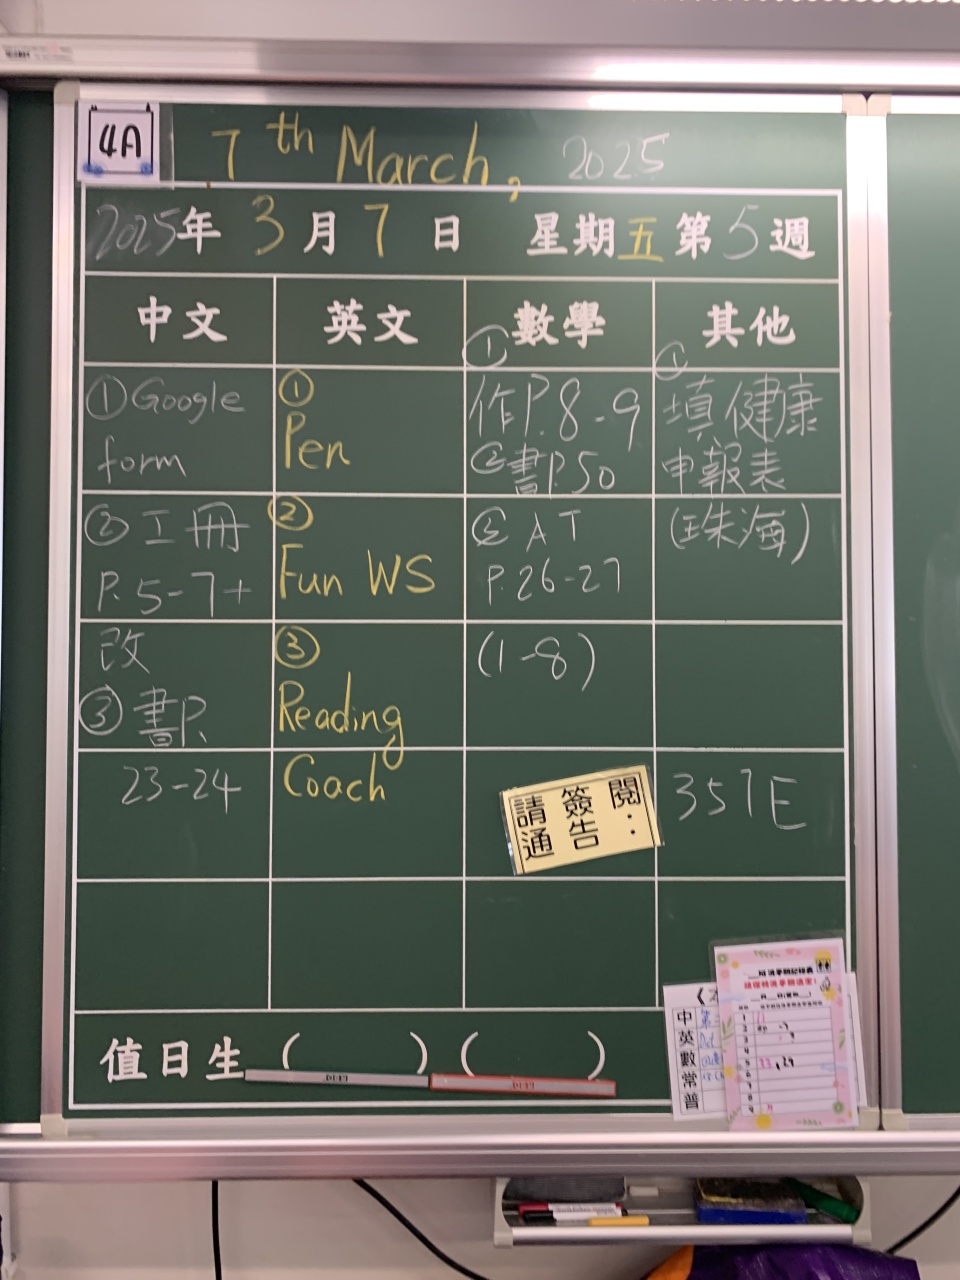 4A
7th March, 2025
2025年3月7日 星期五第5週
中文 英文 數學 其他
①Google
form
② 工冊
P.5-7+
改
③書P.
23-24
①
Pen
②
Fun WS
③
Reading
Coach
①
作P.8-9
②書P.50
③ AT
P.26-27
(1-8)
①
填健康
申報表
(珠海)
請簽閱：
通告
357E
值日生 ( ) ( )
中
英
數
常
普